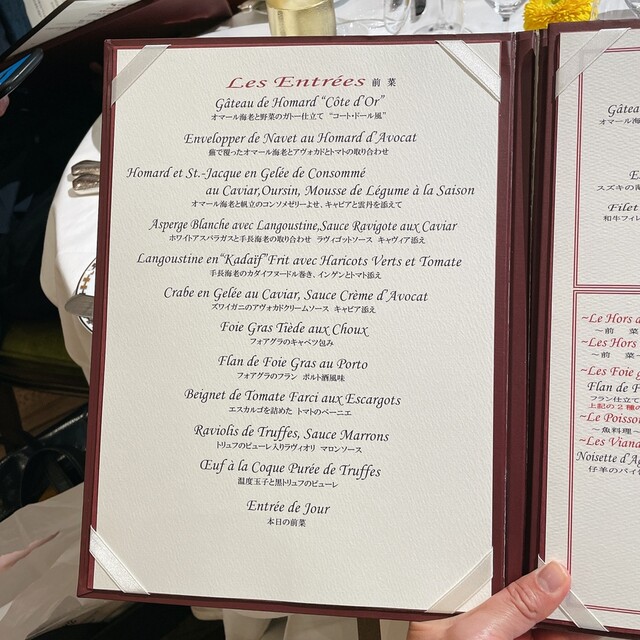 Les Entrées 前菜
Gâteau de Homard "Côte d'Or"
オマール海老と野菜のガトー仕立て "コート・ドール風"
Envelopper de Navet au Homard d'Avocat
蕪で覆ったオマール海老とアヴォカドとトマトの取り合わせ
Homard et St.-Jacque en Gelée de Consommé
au Caviar,Oursin, Mousse de Légume à la Saison
オマール海老と帆立のコンソメゼリーよせ、キャビアと雲丹を添えて
Asperge Blanche avec Langoustine,Sauce Ravigote aux Caviar
ホワイトアスパラガスと手長海老の取り合わせ ラヴィゴットソース キャヴィア添え
Langoustine en "Kadaïf" Frit avec Haricots Verts et Tomate
手長海老のカダイフヌードル巻き、インゲンとトマト添え
Crabe en Gelée au Caviar, Sauce Crème d'Avocat
ズワイガニのアヴォカドクリームソース キャビア添え
Foie Gras Tiède aux Choux
フォアグラのキャベツ包み
Flan de Foie Gras au Porto
フォアグラのフラン ポルト酒風味
Beignet de Tomate Farci aux Escargots
エスカルゴを詰めた トマトのベーニエ
Raviolis de Truffes, Sauce Marrons
トリュフのピューレ入りラヴィオリ マロンソース
Œuf à la Coque Purée de Truffes
温度玉子と黒トリュフのピューレ
Entrée de Jour
本日の前菜
Gâtea
オマール海
スズキの
Filet
和牛フィレ
~Le Hors
~前 菜
~Les Hors
~前 菜
~Les Foie
Flan de F
フラン仕立て
上記の2種の
~Le Poisson
~魚料理~
~Les Viand
Noisette d'Ag
仔羊のパイ